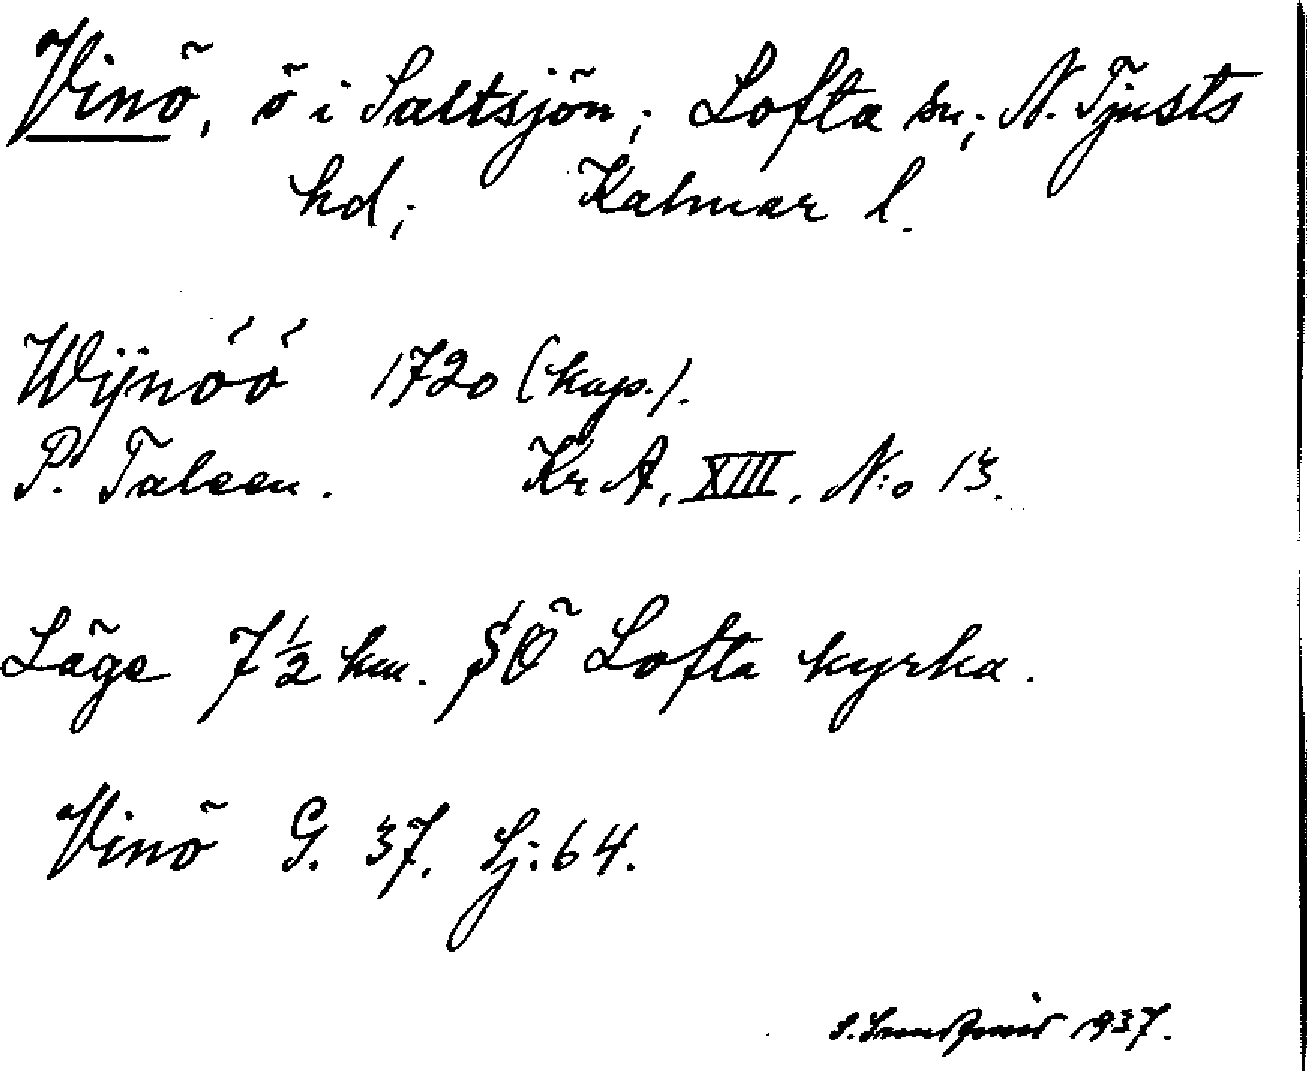 Vinö, ö i Saltsjön; Lofta sn; N. Tjusts
hd; Kalmar l.
Wijnöö 1720 (kop.).
P. Taleen. Kr A, XIII, N:o 13.
Läge 7½ km. SÖ Lofta kyrka.
Vinö G. 37. Sj: 64.
1937.